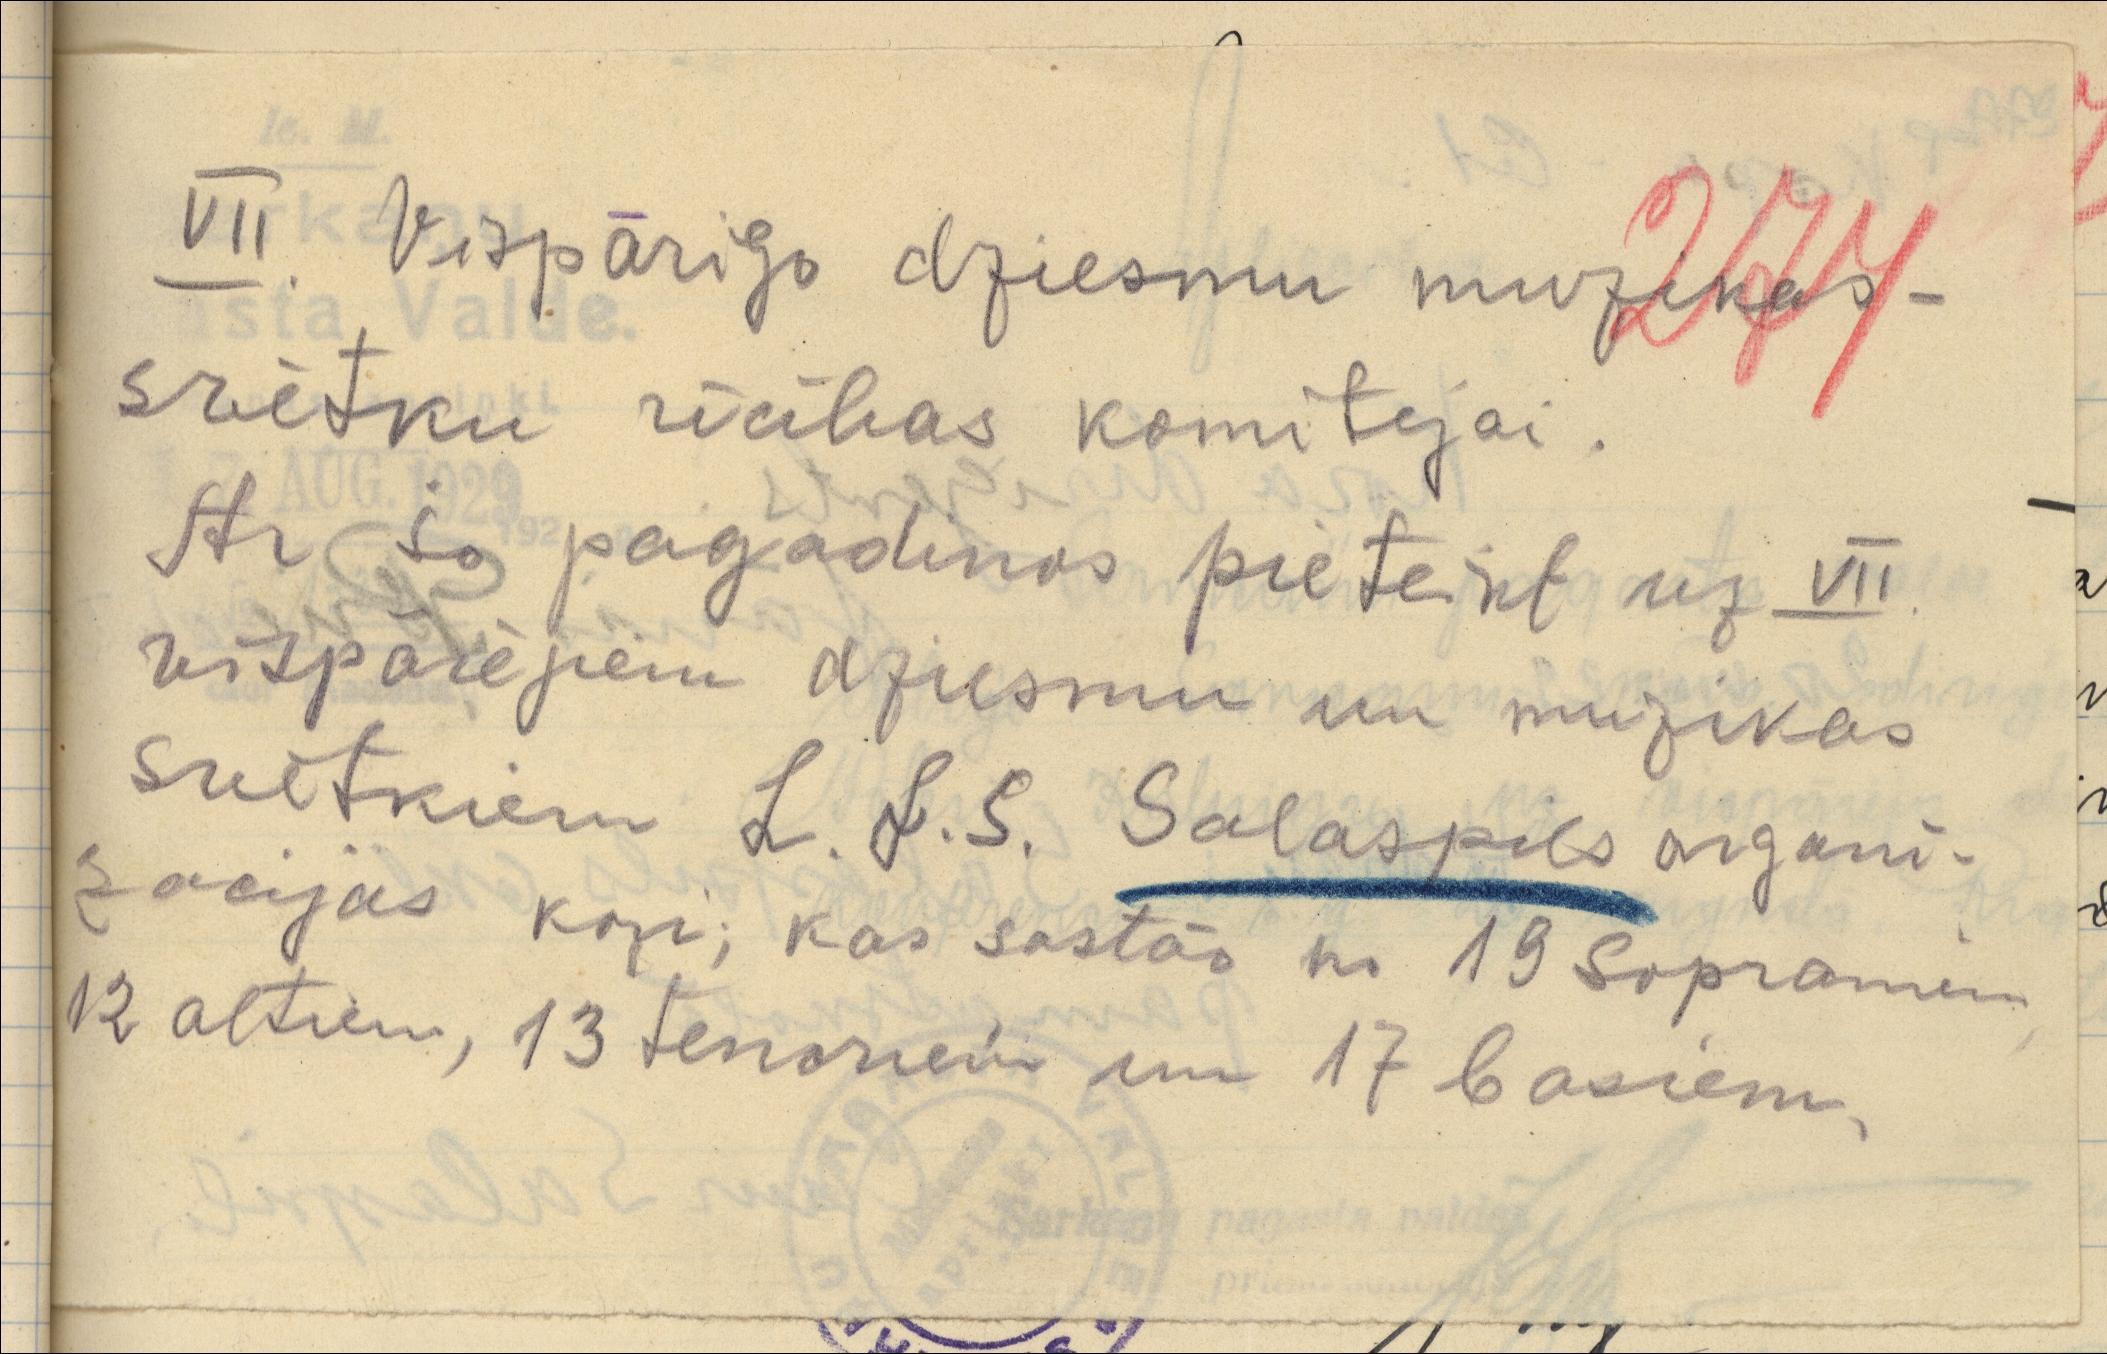 274
VII. Vispārīgo dziesmu muzikas-
svētku rīcības komitejai.
Ar šo pagodinos pieteikt uz VII.
vispārējiem dziesmu un muzikas
svētkiem L. J. S. Salaspils organi-
zacijas kori; kas sastāv no 19 Sopraniem,
12 altiem, 13 tenoriem un 17 basiem,
AUG. 1929
asta Valde.